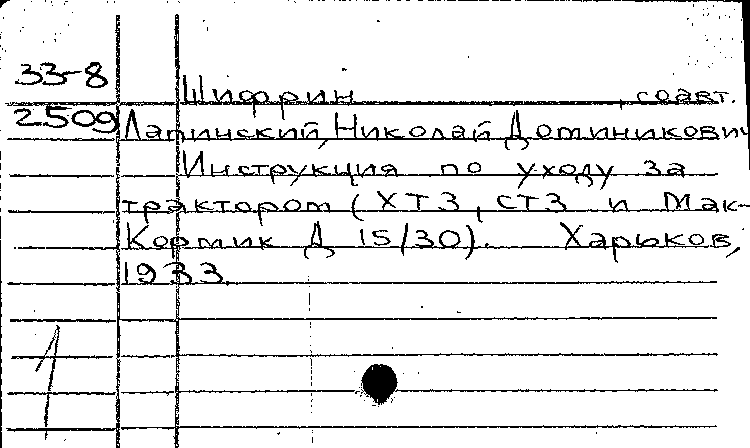 33-8
Шифрин , соавт.
2509 Лапинский, Николай Доминикович
Инструкция по уходу за
трактором (ХТЗ, СТЗ и Мак-
Кормик Д 15/30). Харьков,
1933.
1